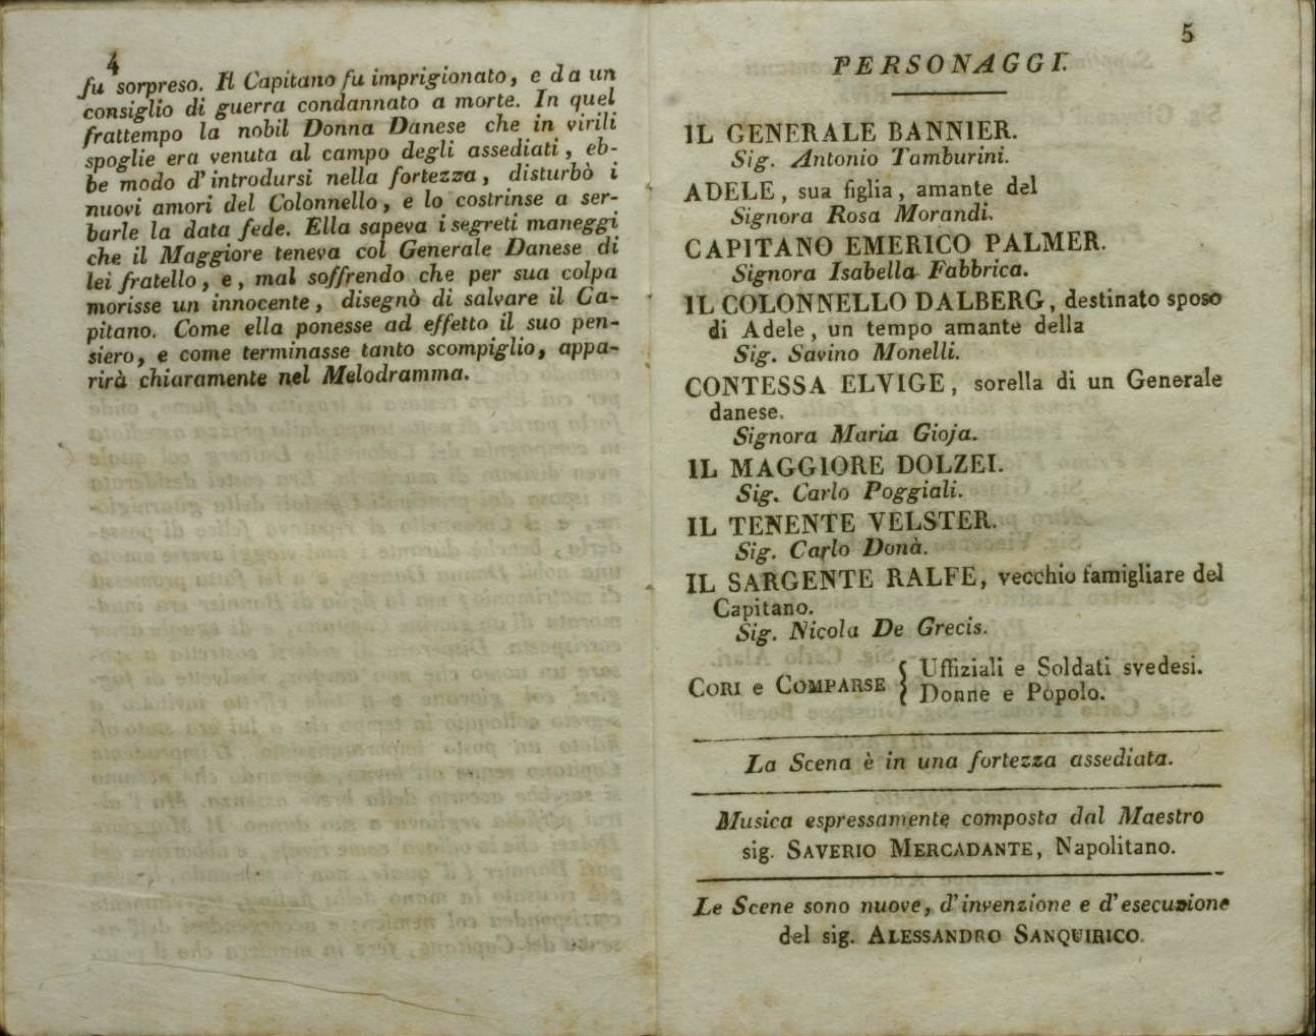 4
fu sorpreso. Il Capitano fu imprigionato, e da un
consiglio di guerra condannato a morte. In quel
frattempo la nobil Donna Danese che in virili
spoglie era venuta al campo degli assediati, eb-
be modo d'introdursi nella fortezza, disturbò i
nuovi amori del Colonnello, e lo costrinse a ser-
barle la data fede. Ella sapeva i segreti maneggi
che il Maggiore teneva col Generale Danese di
lei fratello, e, mal soffrendo che per sua colpa
morisse un innocente, disegnò di salvare il Ca-
pitano. Come ella ponesse ad effetto il suo pen-
siero, e come terminasse tanto scompiglio, appa-
rirà chiaramente nel Melodramma.
5
PERSONAGGI.
IL GENERALE BANNIER.
Sig. Antonio Tamburini.
ADELE, sua figlia, amante del
Signora Rosa Morandi.
CAPITANO EMERICO PALMER.
Signora Isabella Fabbrica.
IL COLONNELLO DALBERG, destinato sposo
di Adele, un tempo amante della
Sig. Savino Monelli.
CONTESSA ELVIGE, sorella di un Generale
danese.
Signora Maria Gioja.
IL MAGGIORE DOLZEI.
Sig. Carlo Poggiali.
IL TENENTE VELSTER.
Sig. Carlo Donà.
IL SARGENTE RALFE, vecchio famigliare del
Capitano.
Sig. Nicola De Grecis.
CORI e COMPARSE { Uffiziali e Soldati svedesi.
Donne e Popolo.
La Scena è in una fortezza assediata.
Musica espressamente composta dal Maestro
sig. SAVERIO MERCADANTE, Napolitano.
Le Scene sono nuove, d'invenzione e d'esecuzione
del sig. ALESSANDRO SANQUIRICO.